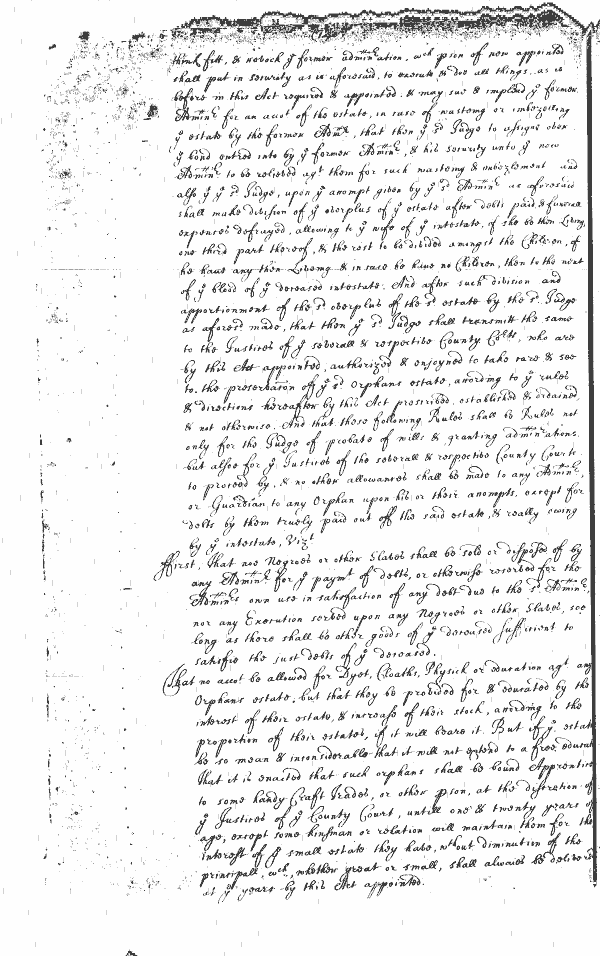 think fitt, & revock yͤ former admin̄ration, wch pson of new appointed
shall put in security as is aforesaid, to execute & doe all things, as is
before in this Act required & appointed. & may sue & implead yͤ former
Adminr for an accot of the estate, in case of wasteing or imbezelling
yͤ estate by the former Admr, that then yͤ sd Judge to assigne over
yͤ bond entred into by yͤ former Adminr, & his security unto yͤ new
Adminr to be releived agt them for such wasteing & imbezlement and
also yͤ sd Judge, upon yͤ accompt given by yͤ sd Adminr as aforesaid
shall make division of yͤ overplus of yͤ estate after debts paid & funerall
expences defrayed, allowing to yͤ wife of yͤ intestate, if she be then Liveing,
one third part thereof, & the rest to be divided amongst the Children, if
he have any then Liveing & in case he have no Children, then to the next
of yͤ blood of yͤ deceased intestate. And after such division and
apportionment of the sd overplus of the sd estate by the sd Judge
as aforesd made, that then yͤ sd Judge shall transmitt the same
to the Justices of yͤ severall & respective County Co̅r̅ts, who are
by this Act appointed, authorized & enjoyned to take care & see
to the preservation of yͤ sd Orphans estate, according to yͤ rules
& directions hereafter by this Act prescribed, established & ordained,
& not otherwise. And that these following Rules shall be Rules not
only for the Judge of probate of wills & granting admin̄rations.
but alsoe for yͤ Justices of the severall & respective County Courts
to proceed by, & no other allowances shall be made to any Adminr,
or Guardian to any Orphan upon his or their accompts, except for
debts by them truely paid out off the said estate, & really owing
by yͤ intestate, Vizt
ffirst, That noe Negroes or other Slaves shall be sold or disposed of by
any Adminr for yͤ paymt of debts, or otherwise reserved for the
Adminrs own use in satisfaction of any debt due to the sd Adminr,
nor any Execution served upon any Negroes or other Slaves, soe
long as there shall be other goods of yͤ deceased sufficient to
satisfie the just debts of yͤ deceased.
That no accot be allowed for Dyet, Cloaths, Physick or education agt any
Orphans estate, but that they be provided for & educated by the
interest of their estate, & increase of their stock, according to the
proportion of their estates, if it will beare it. But if yͤ estate
be so mean & inconsiderable that it will not extend to a free educat
That it is enacted that such orphans shall be bound Apprentice
to some handy Craft Trades, or other pson, at the discretion of
yͤ Justices of yͤ County Court, untill one & twenty years of
age, except some kinsman or relation will maintain them for the
interest of yͤ small estate they have, wthout diminution of the
principall, wch, whether great or small, shall alwaies be delivered
at yͤ years by this Act appointed.